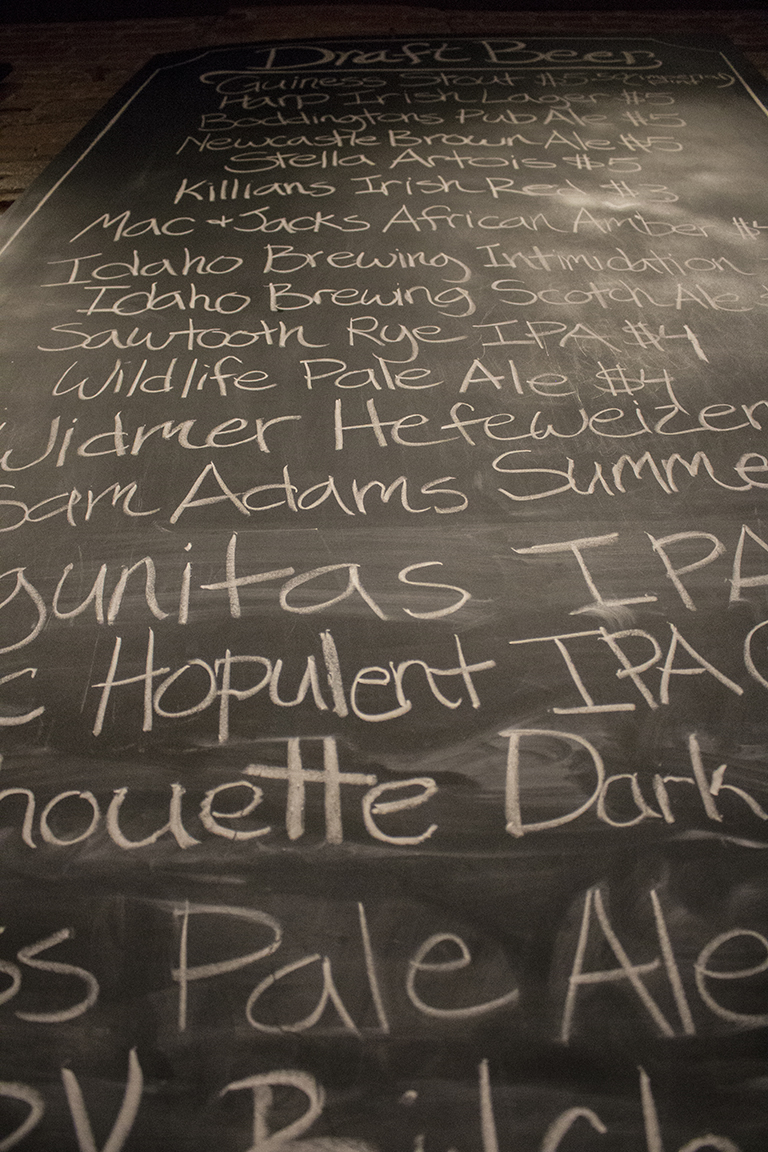 Draft Beer
Guiness Stout $5.50
Harp Irish Lager $5
Boddingtons Pub Ale $5
Newcastle Brown Ale $5
Stella Artois $5
Killians Irish Red $3
Mac & Jacks African Amber $
Idaho Brewing Intimidation
Idaho Brewing Scotch Ale
Sawtooth Rye IPA $4
Wildlife Pale Ale $4
Widmer Hefeweizen
Sam Adams Summe
gunitas IPA
c Hopulent IPA
houette Dark
ss Pale Ale